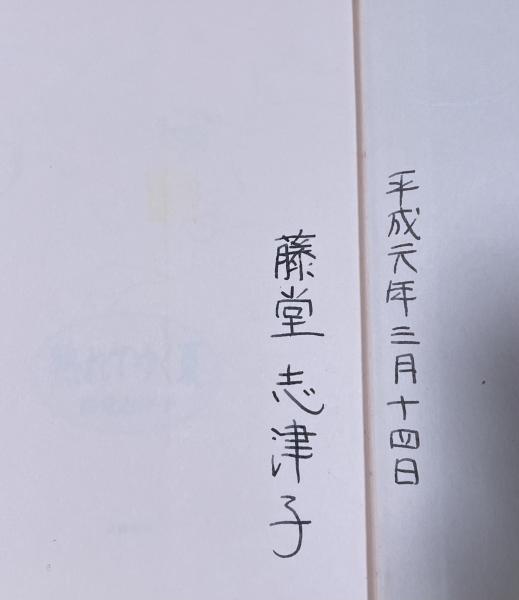 平成元年三月十四日
藤堂志津子